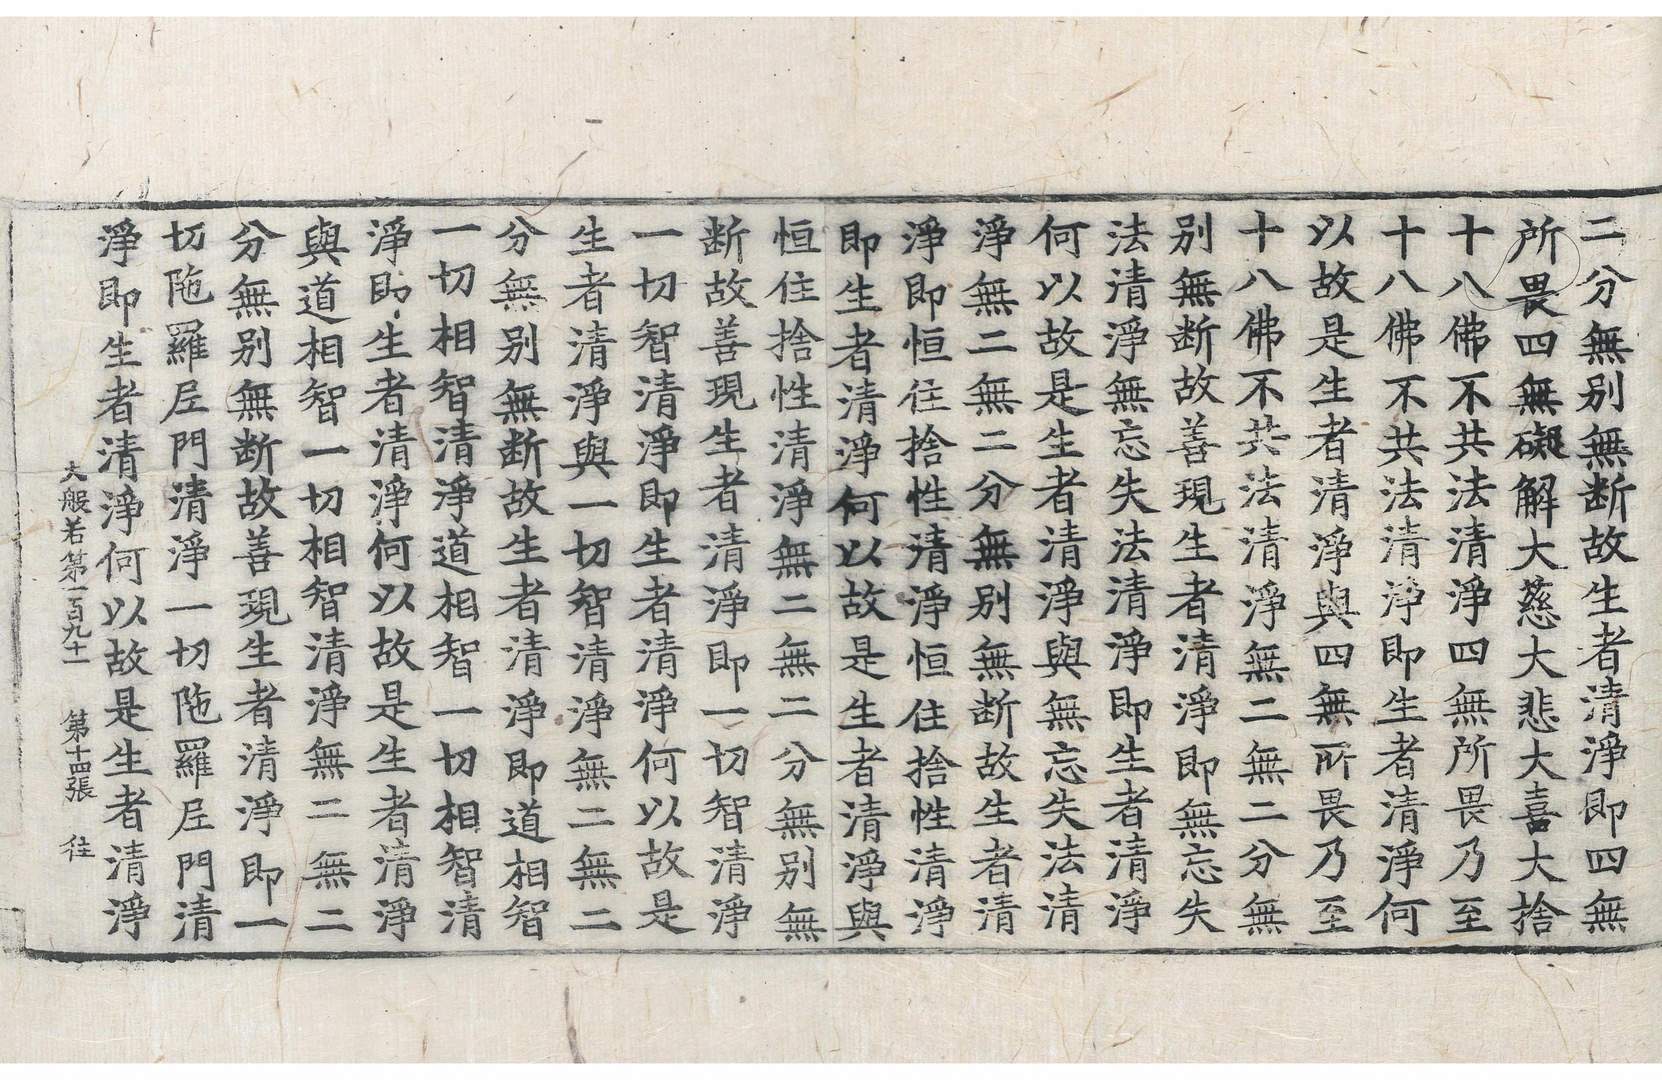 二分無別無断故生者清淨即四無
所畏四無礙解大慈大悲大喜大捨
十八佛不共法清淨四無所畏乃至
十八佛不共法清淨即生者清淨何
以故是生者清淨與四無所畏乃至
十八佛不共法清淨無二無二分無
別無断故善現生者清淨即無忘失
法清淨無忘失法清淨即生者清淨
何以故是生者清淨與無忘失法清
淨無二無二分無別無断故生者清
淨即恒住捨性清淨恒住捨性清淨
即生者清淨何以故是生者清淨與
恒住捨性清淨無二無二分無別無
断故善現生者清淨即一切智清淨
一切智清淨即生者清淨何以故是
生者清淨與一切智清淨無二無二
分無別無断故生者清淨即道相智
一切相智清淨道相智一切相智清
淨即生者清淨何以故是生者清淨
與道相智一切相智清淨無二無二
分無別無断故善現生者清淨即一
切陁羅尼門清淨一切陁羅尼門清
淨即生者清淨何以故是生者清淨
大般若第一百九十一 第十四張 往